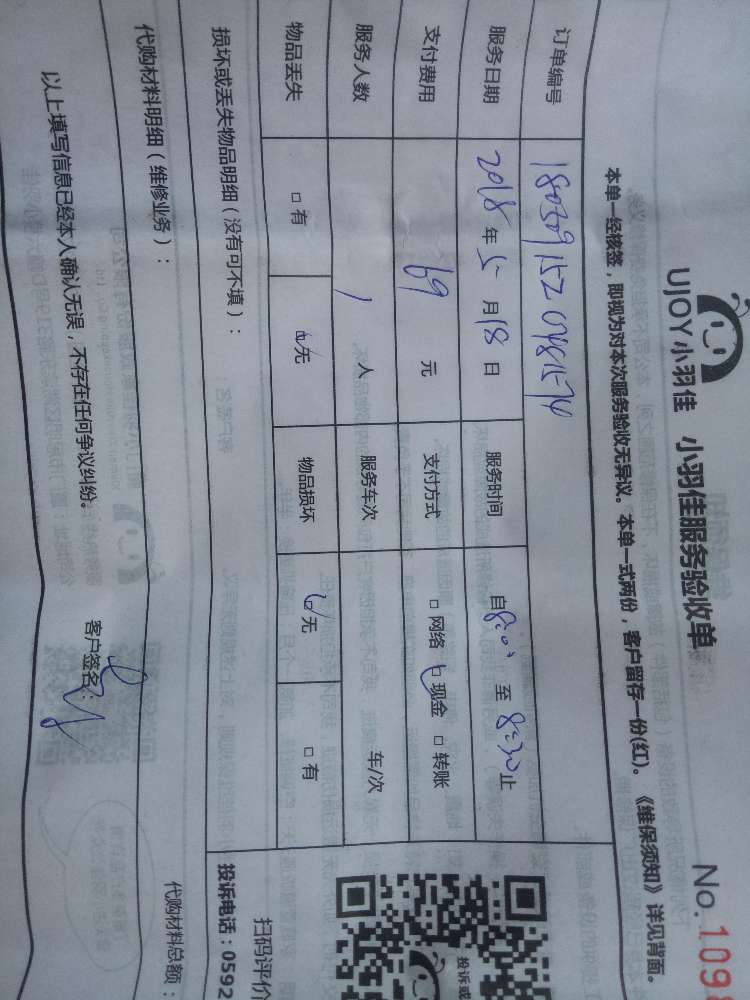 UJOY小羽佳 小羽佳服务验收单 No.1098
本单一经核签，即视为对本次服务验收无异议。本单一式两份，客户留存一份(红)。《维保须知》详见背面。
订单编号
服务日期 2018 年 5 月 18 日 服务时间 自 8:00 至 8:30 止
支付费用 69 元 支付方式 □ 网络 现金 □ 转账
服务人数 1 人 服务车次 车/次
物品丢失 □ 有 无 物品损坏 无 □ 有
损坏或丢失物品明细（没有可不填）：
扫码评价
投诉电话：0592
代购材料明细（维修业务）： 代购材料总额：
以上填写信息已经本人确认无误，不存在任何争议纠纷。 客户签名：
投诉或